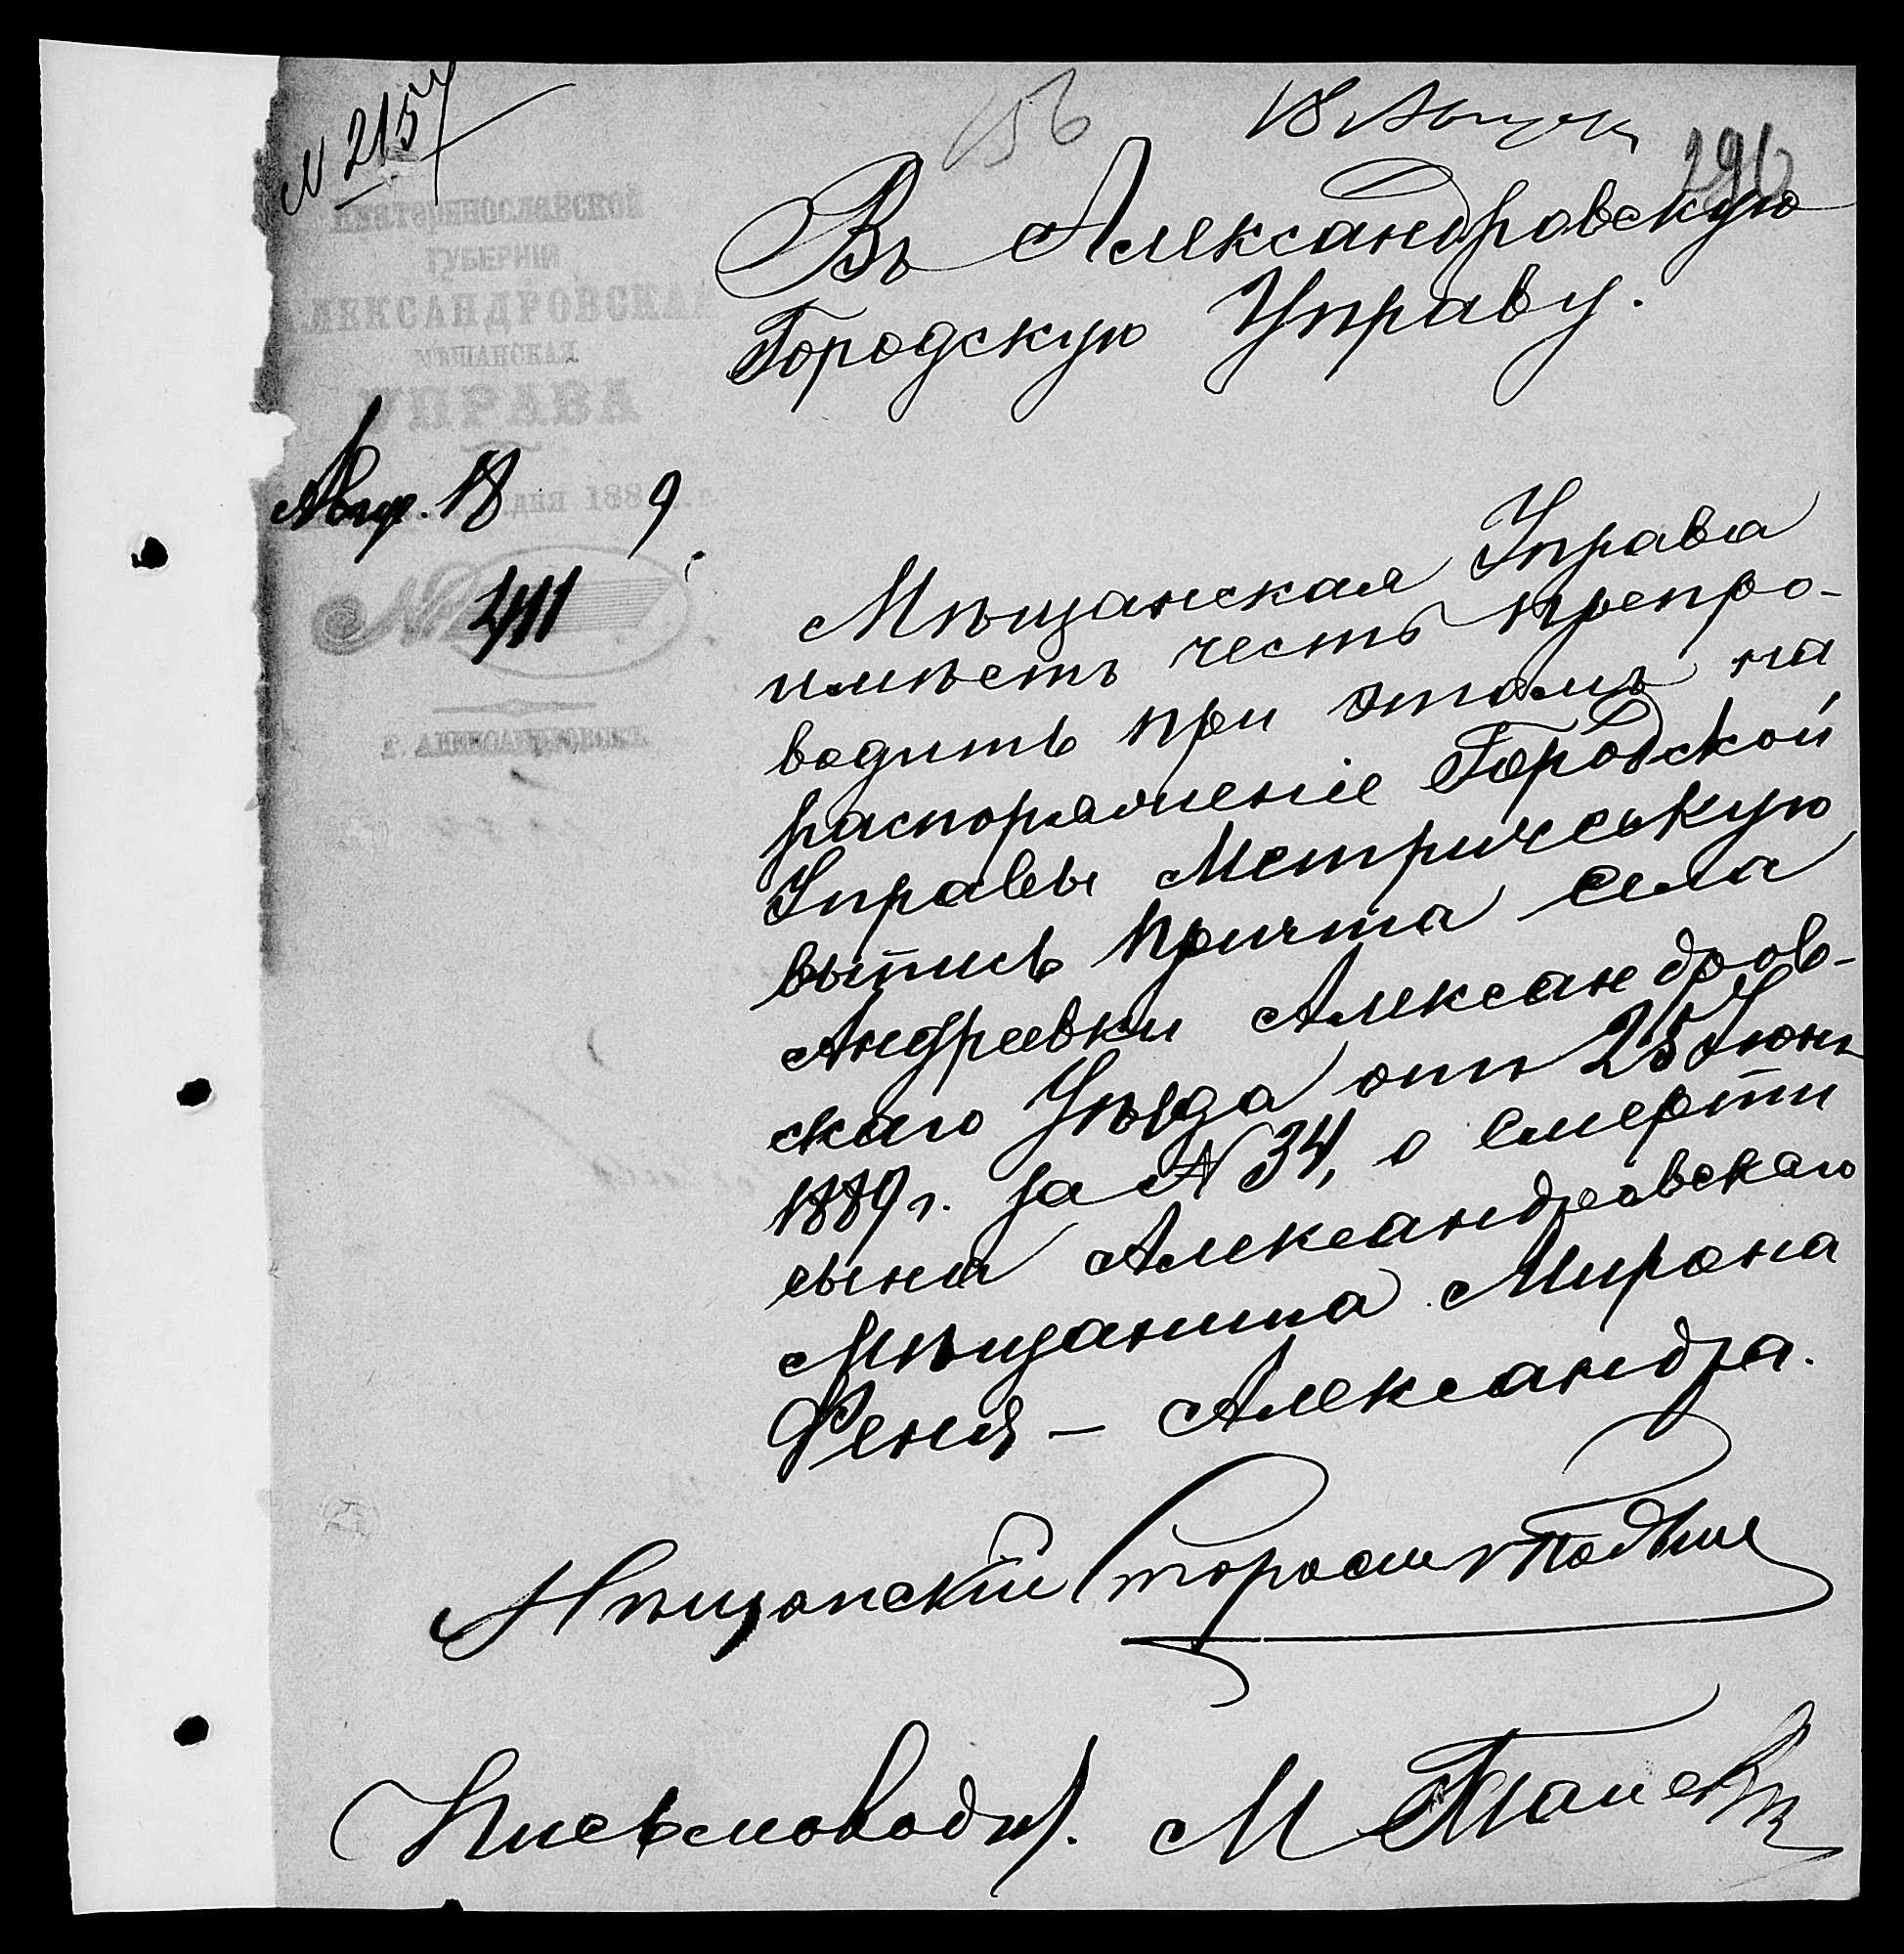 № 2157
156
18 Августа
296
Екатеринославской
губерніи
АЛЕКСАНДРОВСКАЯ
МѢЩАНСКАЯ
УПРАВА
Авг. 18 дня 1889 г.
№ 411
г. Александровскъ
Въ Александровскую
Городскую Управу.
Мѣщанская Управа
имѣетъ честь препро-
водить при этомъ на
распоряженіе Городской
Управы Метрическую
выпись причта села
Андреевки Александров-
скаго Уѣзда отъ 25 Іюня
1889 г. за № 34, о смерти
сына Александровскаго
Мѣщанина Мирона
Феня - Александра.
Мѣщанскій Староста
Письмоводит. М